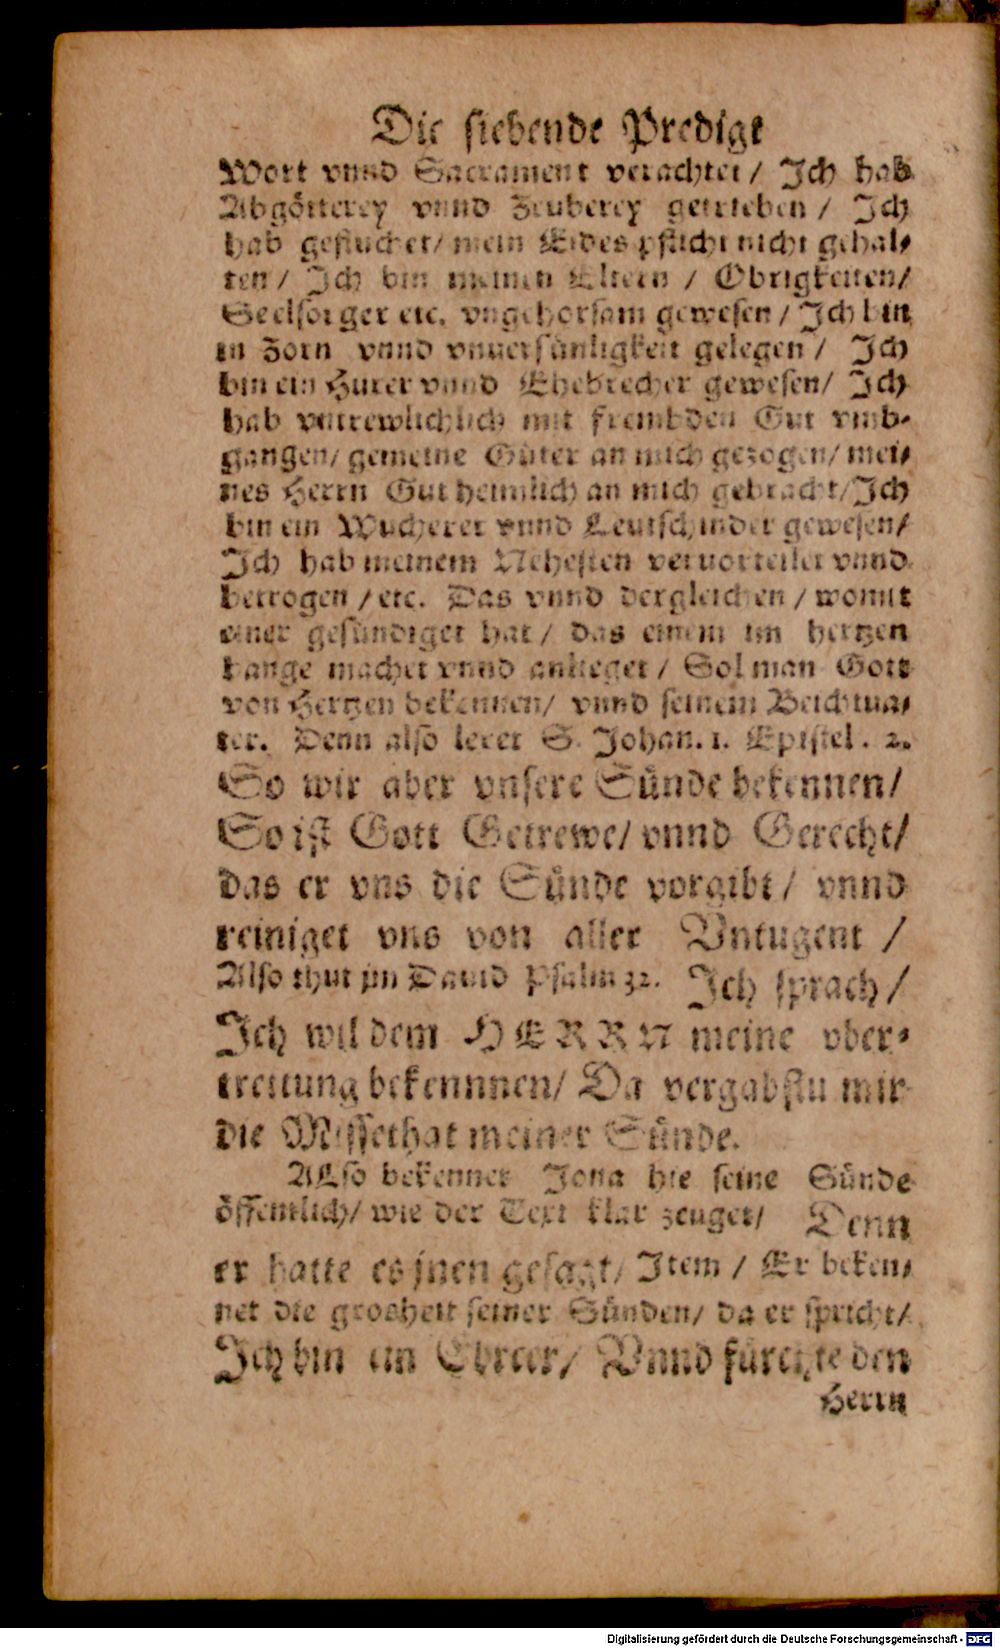 Die siebende Predigt
Wort vnnd Sacrament verachtet / Ich hab
Abgötterey vnnd Zeuberey getrieben / Ich
hab gefluchet / mein Eides pflicht nicht gehal-
ten / Ich bin meinen Eltern / Obrigkeiten /
Seelsorger etc. vngehorsam gewesen / Ich bin
in Zorn vnnd vnuersünligkeit gelegen / Ich
bin ein Hurer vnnd Ehebrecher gewesen / Ich
hab vntrewlichlich mit frembden Gut vmb-
gangen / gemeine Güter an mich gezogen / mei-
nes Herrn Gut heimlich an mich gebracht / Ich
bin ein Wucherer vnnd Leutschinder gewesen /
Ich hab meinem Nehesten veruorteilet vnnd
betrogen / etc. Das vnnd dergleichen / womit
einer gesündiget hat / das einem im hertzen
bange machet vnnd anlieget / Sol man Gott
von Hertzen bekennen / vnnd seinem Beichtua-
ter. Denn also leret S. Johan. 1. Epistel. 2.
So wir aber vnsere Sünde bekennen /
So ist Gott Getrewe / vnnd Gerecht /
das er vns die Sünde vorgibt / vnnd
reiniget vns von aller Vntugent /
Also thut jm Dauid Psalm 32. Ich sprach /
Ich wil dem HERRN meine vber-
trettung bekennnen / Da vergabstu mir
die Missethat meiner Sünde.
ALso bekennet Jona hie seine Sünde
öffentlich / wie der Text klar zeuget / Denn
er hatte es jnen gesagt / Item / Er beken-
net die grosheit seiner Sünden / da er spricht /
Ich bin ein Ebreer / Vnnd fürchte den
Herrn
Digitalisierung gefördert durch die Deutsche Forschungsgemeinschaft - DFG